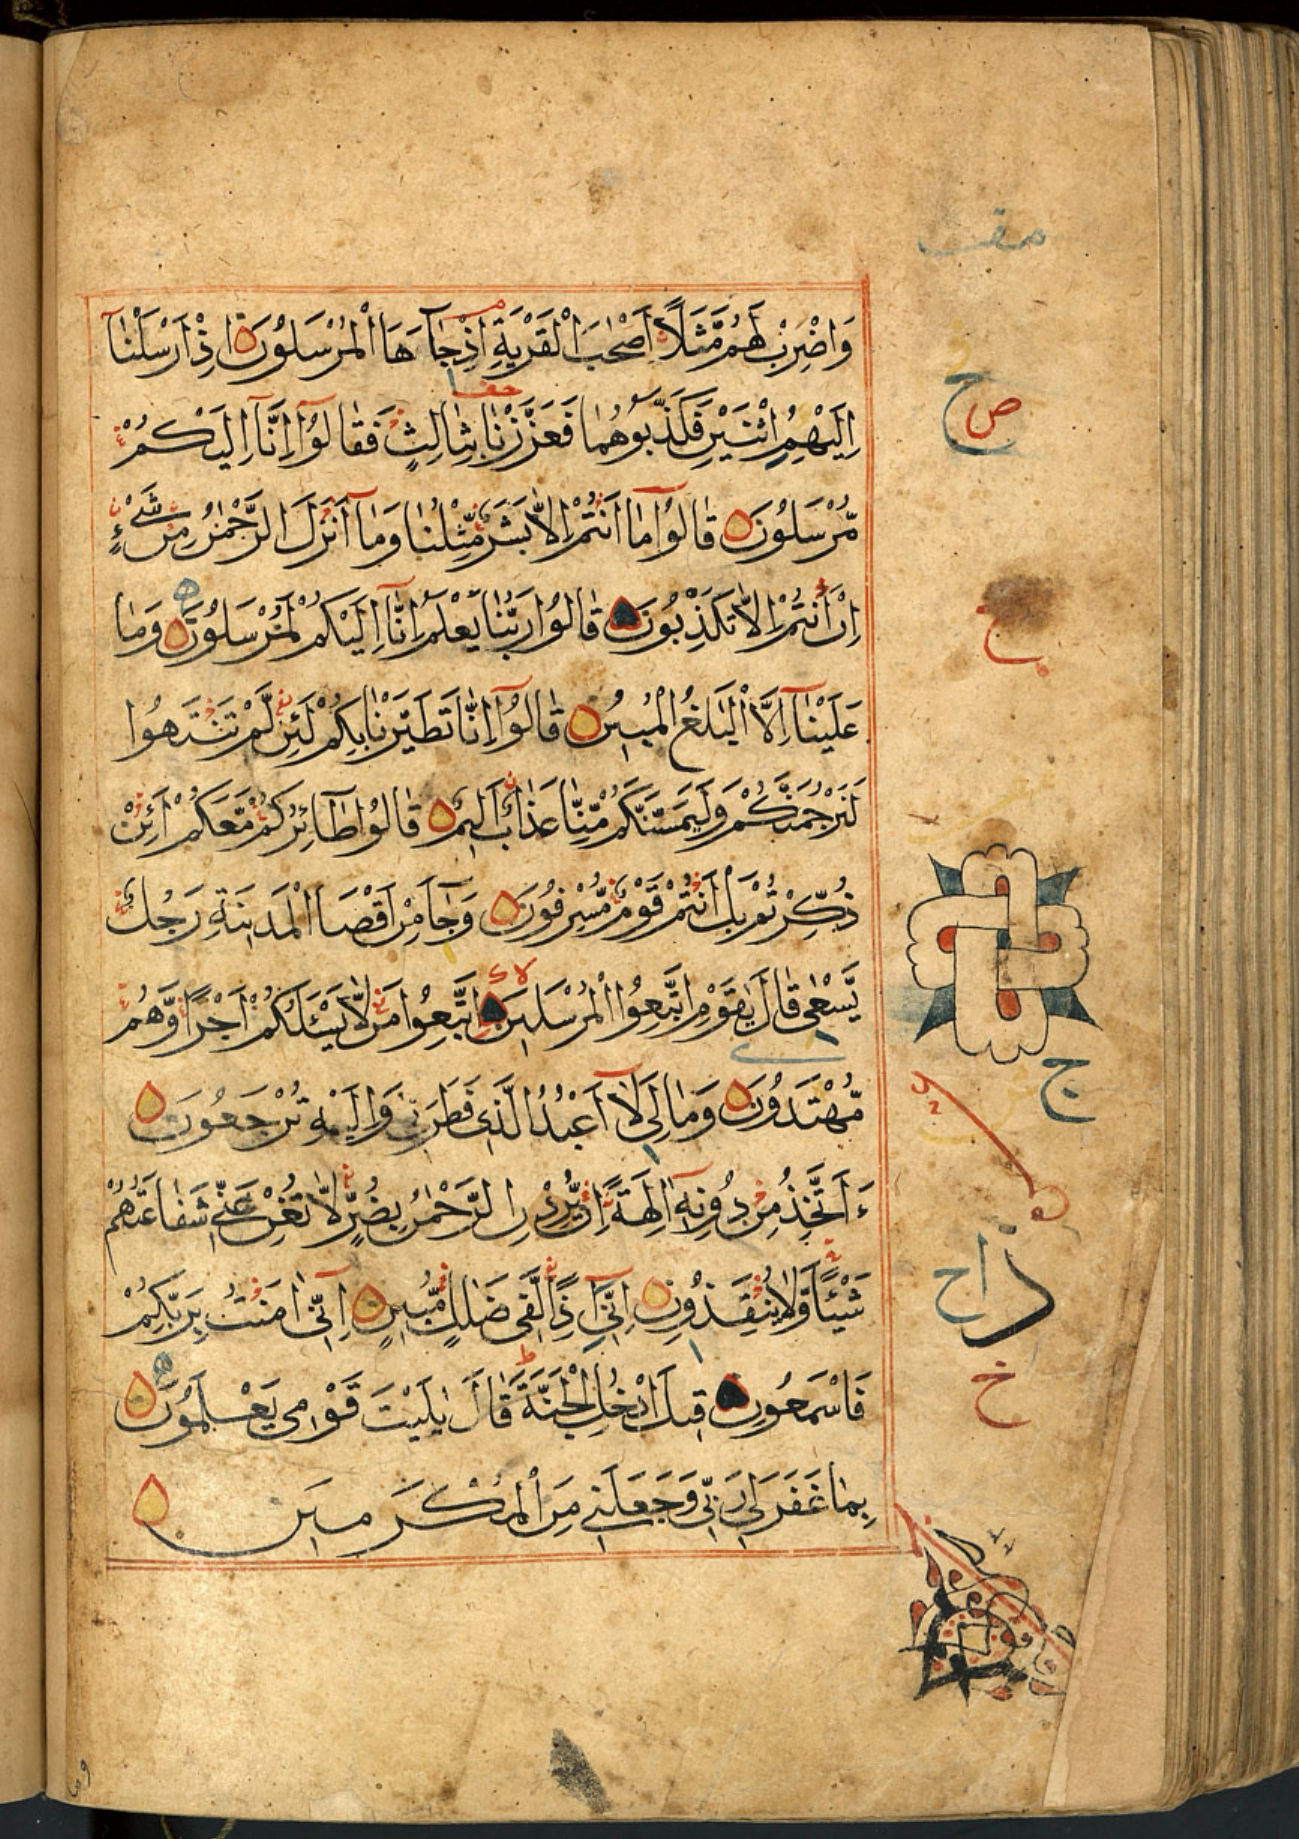 وَاضْرِبْ لَهُمْ مَّثَلًا أَصْحٰبَ الْقَرْيَةِ اِذْ جَآءَهَا الْمُرْسَلُوْنَ اِذْ اَرْسَلْنَآ
اِلَيْهِمُ اثْنَيْنِ فَكَذَّبُوْهُمَا فَعَزَّزْنَا بِثَالِثٍ فَقَالُوْٓا اِنَّآ اِلَيْكُمْ
مُّرْسَلُوْنَ قَالُوْا مَآ اَنْتُمْ اِلَّا بَشَرٌ مِّثْلُنَا وَمَآ اَنْزَلَ الرَّحْمٰنُ مِنْ شَيْءٍ
اِنْ اَنْتُمْ اِلَّا تَكْذِبُوْنَ قَالُوْا رَبُّنَا يَعْلَمُ اِنَّآ اِلَيْكُمْ لَمُرْسَلُوْنَ وَمَا
عَلَيْنَآ اِلَّا الْبَلٰغُ الْمُبِيْنُ قَالُوْٓا اِنَّا تَطَيَّرْنَا بِكُمْ لَئِنْ لَّمْ تَنْتَهُوْا
لَنَرْجُمَنَّكُمْ وَلَيَمَسَّنَّكُمْ مِّنَّا عَذَابٌ اَلِيْمٌ قَالُوْا طَآئِرُكُمْ مَّعَكُمْ اَئِنْ
ذُكِّرْتُمْ بَلْ اَنْتُمْ قَوْمٌ مُّسْرِفُوْنَ وَجَآءَ مِنْ اَقْصَا الْمَدِيْنَةِ رَجُلٌ
يَّسْعٰى قَالَ يٰقَوْمِ اتَّبِعُوا الْمُرْسَلِيْنَ اتَّبِعُوْا مَنْ لَّا يَسْئَلُكُمْ اَجْرًا وَّهُمْ
مُّهْتَدُوْنَ وَمَا لِيَ لَآ اَعْبُدُ الَّذِيْ فَطَرَنِيْ وَاِلَيْهِ تُرْجَعُوْنَ
ءَاَتَّخِذُ مِنْ دُوْنِهٖٓ اٰلِهَةً اِنْ يُّرِدْنِ الرَّحْمٰنُ بِضُرٍّ لَّا تُغْنِ عَنِّيْ شَفَاعَتُهُمْ
شَيْئًا وَّلَا يُنْقِذُوْنِ اِنِّيْٓ اِذًا لَّفِيْ ضَلٰلٍ مُّبِيْنٍ اِنِّيْٓ اٰمَنْتُ بِرَبِّكُمْ
فَاسْمَعُوْنِ قِيْلَ ادْخُلِ الْجَنَّةَ قَالَ يٰلَيْتَ قَوْمِيْ يَعْلَمُوْنَ
بِمَا غَفَرَ لِيْ رَبِّيْ وَجَعَلَنِيْ مِنَ الْمُكْرَمِيْنَ
ص
ح
ج
خ